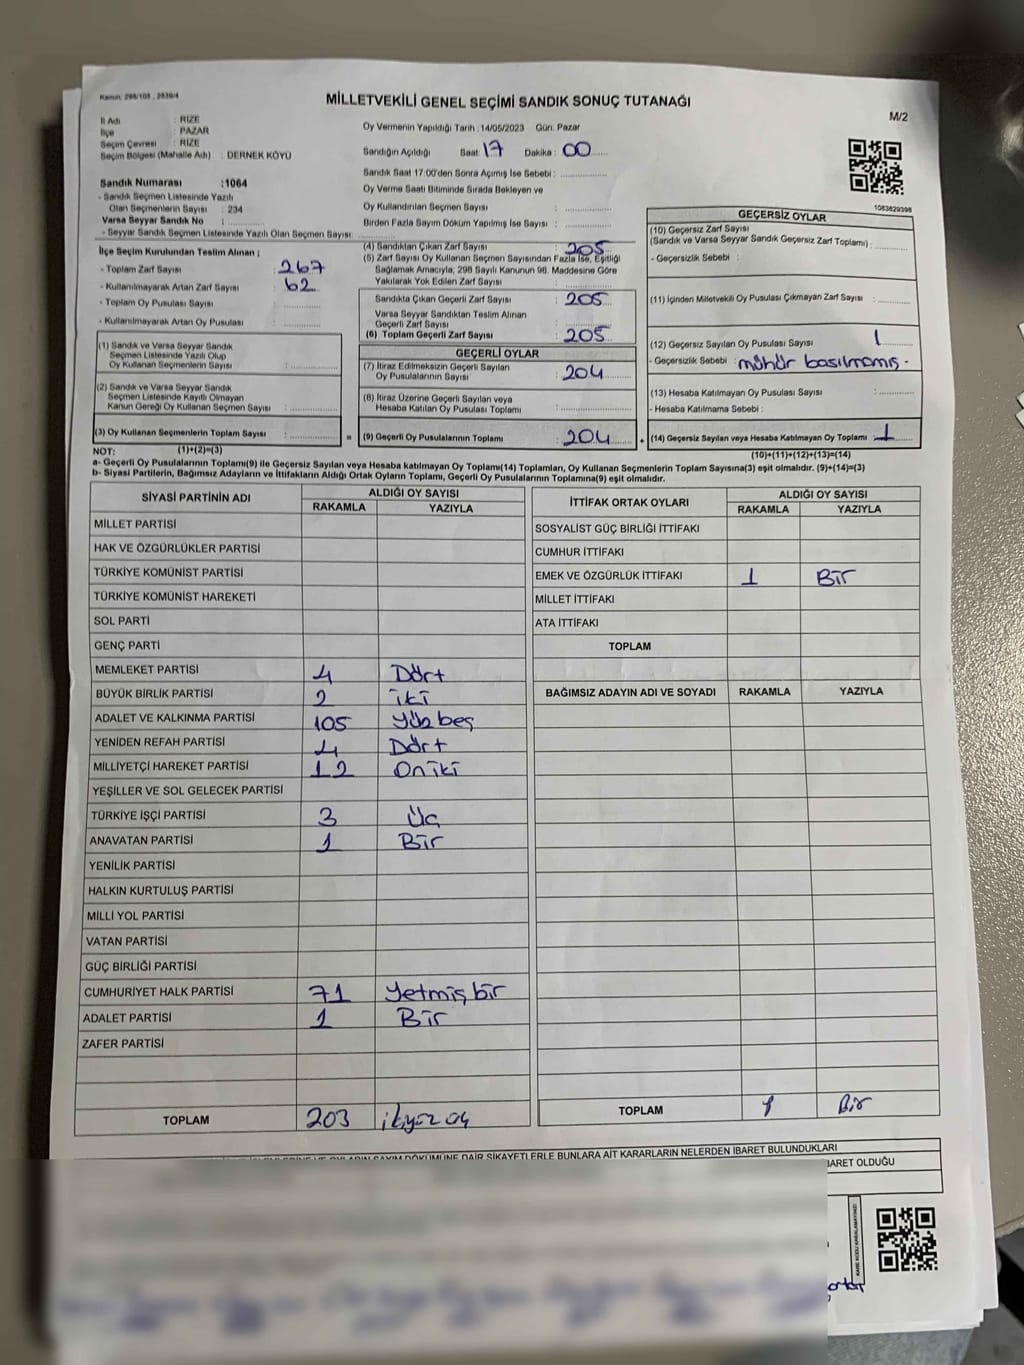 Kanun: 298/105 , 2839/4
MİLLETVEKİLİ GENEL SEÇİMİ SANDIK SONUÇ TUTANAĞI
M/2
İl Adı : RİZE
İlçe : PAZAR
Seçim Çevresi : RİZE
Seçim Bölgesi (Mahalle Adı) : DERNEK KÖYÜ
Sandık Numarası :1064
- Sandık Seçmen Listesinde Yazılı
Olan Seçmenlerin Sayısı : 234
Varsa Seyyar Sandık No :
- Seyyar Sandık Seçmen Listesinde Yazılı Olan Seçmen Sayısı:
Oy Vermenin Yapıldığı Tarih :14/05/2023 Gün: Pazar
Sandığın Açıldığı Saat: 17 Dakika : 00
Sandık Saat 17:00'den Sonra Açımış İse Sebebi :
Oy Verme Saati Bitiminde Sırada Bekleyen ve
Oy Kullandırılan Seçmen Sayısı :
Birden Fazla Sayım Döküm Yapılmış İse Sayısı :
1083829398
İlçe Seçim Kurulundan Teslim Alınan ;
- Toplam Zarf Sayısı : 267
- Kullanılmayarak Artan Zarf Sayısı : 62
- Toplam Oy Pusulası Sayısı :
- Kullanılmayarak Artan Oy Pusulası :
(1) Sandık ve Varsa Seyyar Sandık
Seçmen Listesinde Yazılı Olup
Oy Kullanan Seçmenlerin Sayısı :
(2) Sandık ve Varsa Seyyar Sandık
Seçmen Listesinde Kayıtlı Olmayan
Kanun Gereği Oy Kullanan Seçmen Sayısı :
(3) Oy Kullanan Seçmenlerin Toplam Sayısı :
(1)+(2)=(3)
(4) Sandıktan Çıkan Zarf Sayısı : 205
(5) Zarf Sayısı Oy Kullanan Seçmen Sayısından Fazla İse, Eşitliği
Sağlamak Amacıyla, 298 Sayılı Kanunun 98. Maddesine Göre
Yakılarak Yok Edilen Zarf Sayısı :
Sandıkta Çıkan Geçerli Zarf Sayısı : 205
Varsa Seyyar Sandıktan Teslim Alınan
Geçerli Zarf Sayısı :
(6) Toplam Geçerli Zarf Sayısı : 205
GEÇERLİ OYLAR
(7) İtiraz Edilmeksizin Geçerli Sayılan
Oy Pusulalarının Sayısı : 204
(8) İtiraz Üzerine Geçerli Sayılan veya
Hesaba Katılan Oy Pusulası Toplamı :
= (9) Geçerli Oy Pusulalarının Toplamı : 204
GEÇERSİZ OYLAR
(10) Geçersiz Zarf Sayısı
(Sandık ve Varsa Seyyar Sandık Geçersiz Zarf Toplamı) :
- Geçersizlik Sebebi :
(11) İçinden Milletvekili Oy Pusulası Çıkmayan Zarf Sayısı :
(12) Geçersiz Sayılan Oy Pusulası Sayısı : 1
- Geçersizlik Sebebi : mühür basılmamış.
(13) Hesaba Katılmayan Oy Pusulası Sayısı :
- Hesaba Katılmama Sebebi :
+ (14) Geçersiz Sayılan veya Hesaba Katılmayan Oy Toplamı : 1
(10)+(11)+(12)+(13)=(14)
NOT:
a- Geçerli Oy Pusulalarının Toplamı(9) ile Geçersiz Sayılan veya Hesaba katılmayan Oy Toplamı(14) Toplamları, Oy Kullanan Seçmenlerin Toplam Sayısına(3) eşit olmalıdır. (9)+(14)=(3)
b- Siyasi Partilerin, Bağımsız Adayların ve İttifakların Aldığı Ortak Oyların Toplamı, Geçerli Oy Pusulalarının Toplamına(9) eşit olmalıdır.
SİYASİ PARTİNİN ADI ALDIĞI OY SAYISI
RAKAMLA YAZIYLA
MİLLET PARTİSİ
HAK VE ÖZGÜRLÜKLER PARTİSİ
TÜRKİYE KOMÜNİST PARTİSİ
TÜRKİYE KOMÜNİST HAREKETİ
SOL PARTİ
GENÇ PARTİ
MEMLEKET PARTİSİ 4 Dört
BÜYÜK BİRLİK PARTİSİ 2 iki
ADALET VE KALKINMA PARTİSİ 105 Yüzbeş
YENİDEN REFAH PARTİSİ 4 Dört
MİLLİYETÇİ HAREKET PARTİSİ 12 Oniki
YEŞİLLER VE SOL GELECEK PARTİSİ
TÜRKİYE İŞÇİ PARTİSİ 3 Üç
ANAVATAN PARTİSİ 1 Bir
YENİLİK PARTİSİ
HALKIN KURTULUŞ PARTİSİ
MİLLİ YOL PARTİSİ
VATAN PARTİSİ
GÜÇ BİRLİĞİ PARTİSİ
CUMHURİYET HALK PARTİSİ 71 Yetmiş bir
ADALET PARTİSİ 1 Bir
ZAFER PARTİSİ
TOPLAM 203 ikiyüz üç
İTTİFAK ORTAK OYLARI ALDIĞI OY SAYISI
RAKAMLA YAZIYLA
SOSYALİST GÜÇ BİRLİĞİ İTTİFAKI
CUMHUR İTTİFAKI
EMEK VE ÖZGÜRLÜK İTTİFAKI 1 Bir
MİLLET İTTİFAKI
ATA İTTİFAKI
TOPLAM
BAĞIMSIZ ADAYIN ADI VE SOYADI RAKAMLA YAZIYLA
TOPLAM 1 Bir
SAYIM DÖKÜMÜNE DAİR ŞİKAYETLERLE BUNLARA AİT KARARLARIN NELERDEN İBARET BULUNDUKLARI
İBARET OLDUĞU